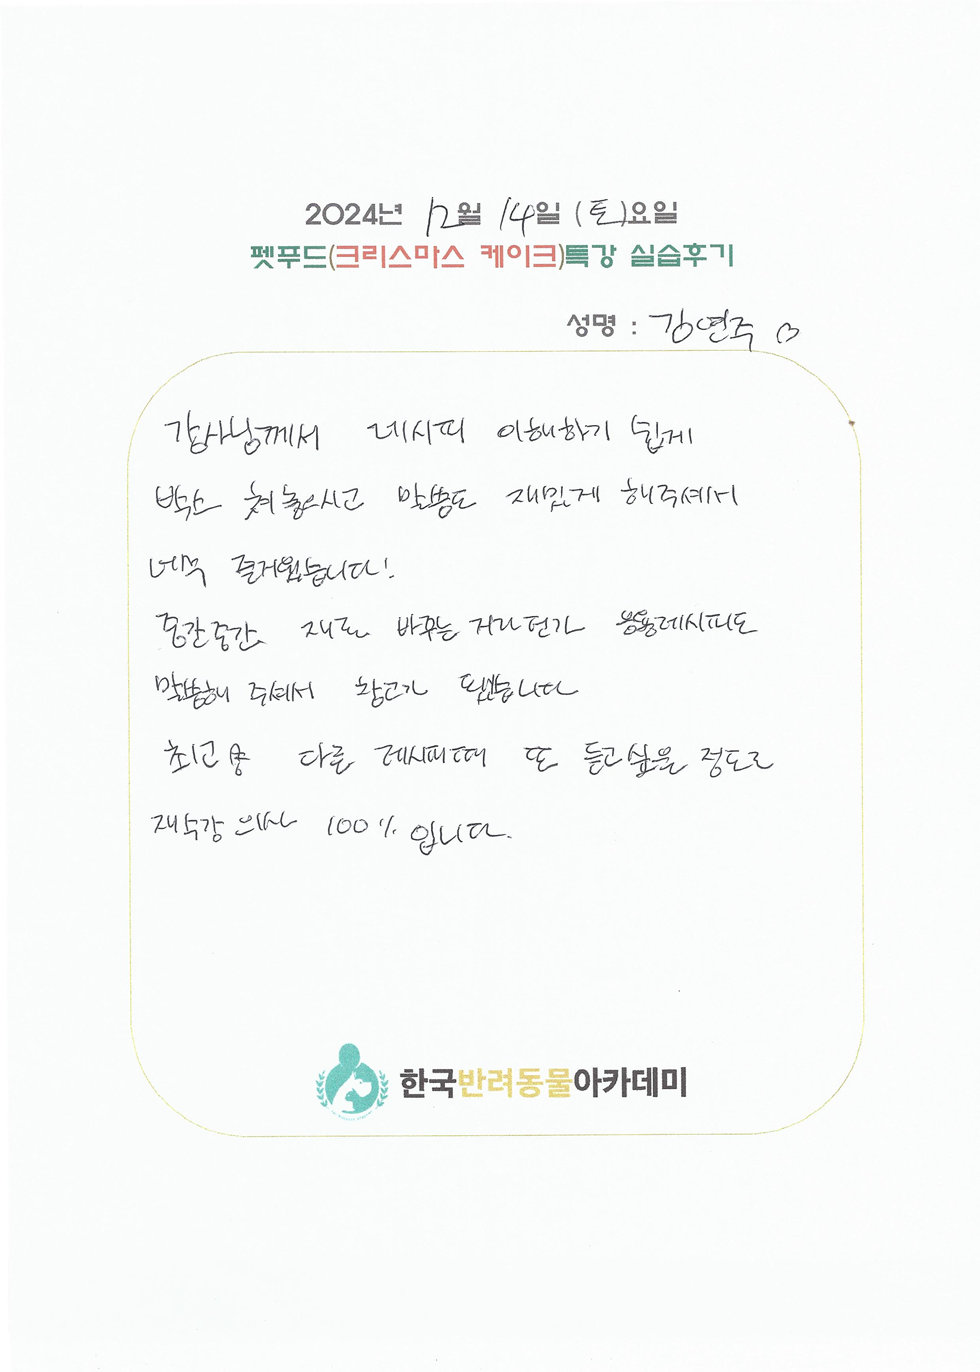 2024년 12월 14일 (토)요일
펫푸드(크리스마스 케이크)특강 실습후기
성명 : 김연주 ♡
강사님께서 레시피 이해하기 쉽게
박스 쳐놓으시고 말씀도 재밌게 해주셔서
너무 즐거웠습니다!
중간중간 재료 바꾸는거라던가 응용레시피도
말씀해 주셔서 참고가 됐습니다
최고 다른 레시피때 또 듣고싶을 정도로
재수강 의사 100% 입니다.
한국반려동물아카데미